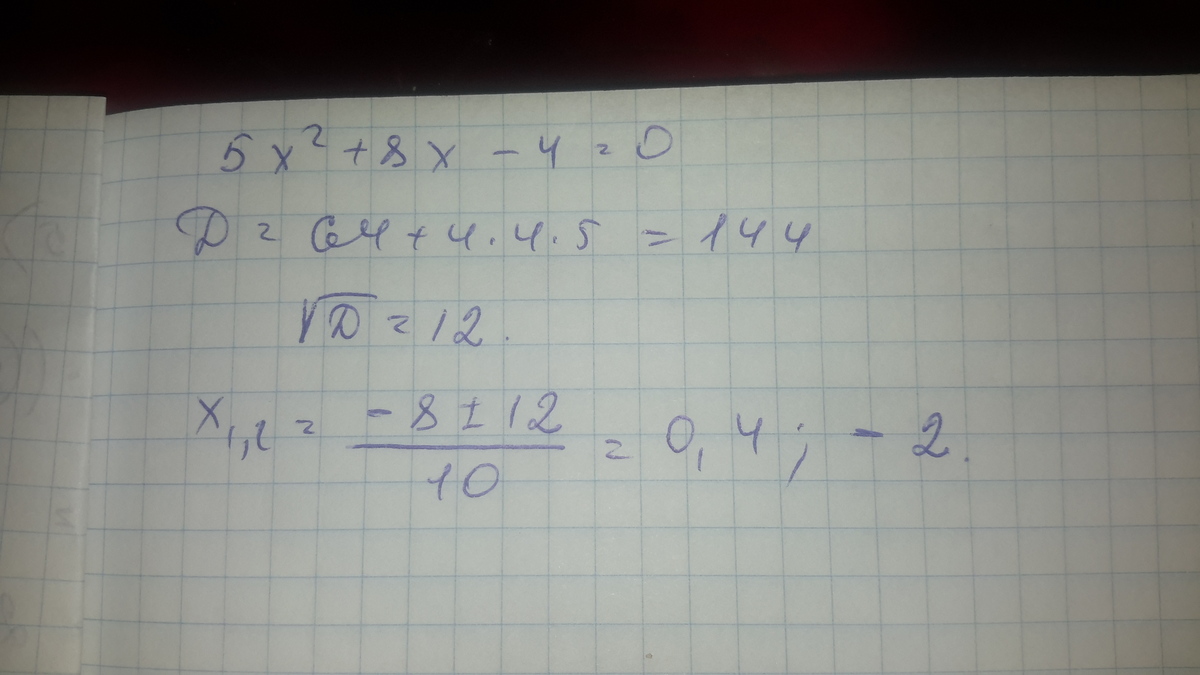 5x² + 8x - 4 = 0
D = 64 + 4·4·5 = 144
√D = 12.
x₁,₂ = (-8 ± 12)/10 = 0,4; -2.